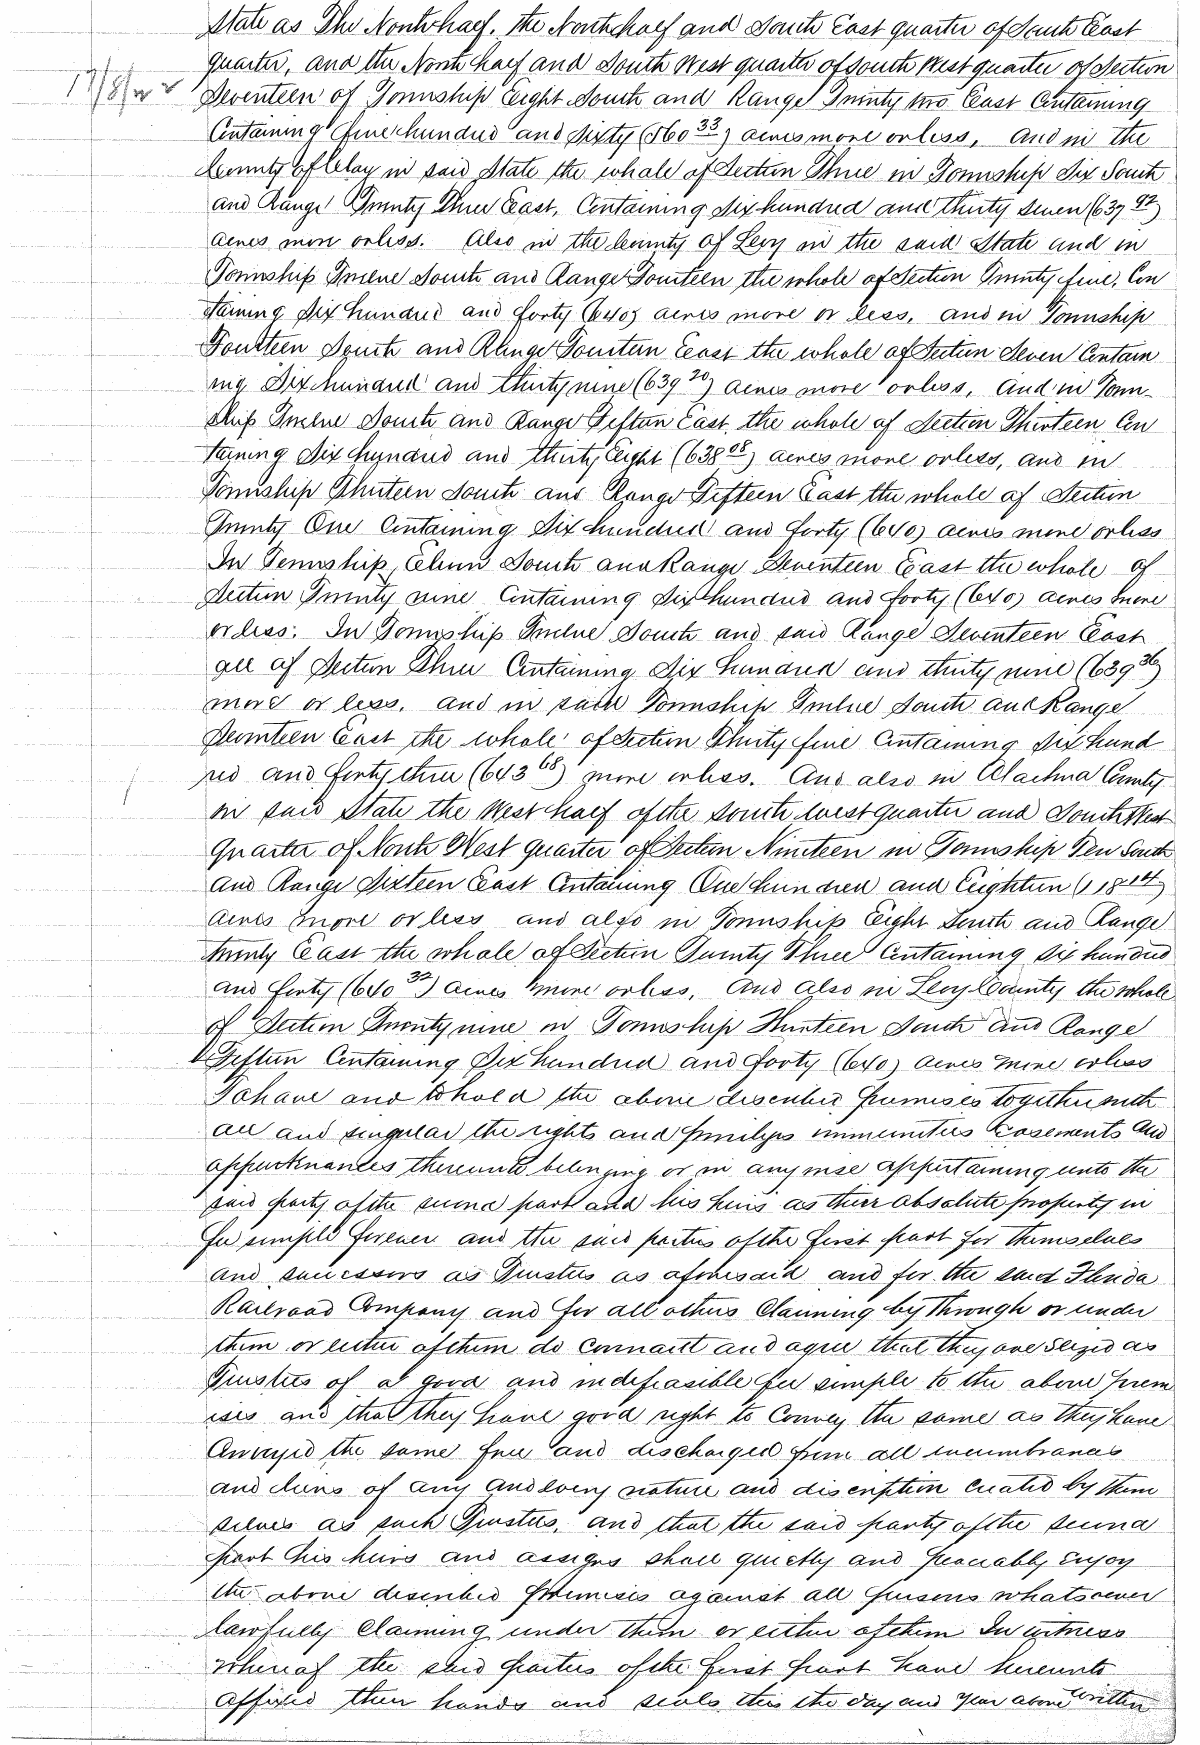 State as The North half. the North half and South East quarter of South East
quarter, and the North half and South West quarter of South West quarter of Section
17/8/22
Seventeen of Township Eight South and Range Twenty two East Containing
Containing five hundred and Sixty (560 33) acres more or less, and in the
County of Clay in said State the whole of Section Three in Township Six South
and Range Twenty Three East, Containing Six hundred and thirty seven (637 92)
acres more or less. Also in the County of Levy in the said State and in
Township Twelve South and Range Fourteen the whole of Section Twenty five, Con
taining Six hundred and forty (640) acres more or less, and in Township
Fourteen South and Range Fourteen East the whole of Section Seven Contain
ing Six hundred and thirty nine (639 20) acres more or less, and in Town-
ship Twelve South and Range Fifteen East the whole of Section Thirteen Con
taining Six hundred and thirty Eight (638 08) acres more or less, and in
Township Thirteen South and Range Fifteen East the whole of Section
Twenty One Containing Six hundred and forty (640) acres more or less
In Township Eleven South and Range Seventeen East the whole of
Section Twenty nine Containing Six hundred and forty (640) acres more
or less. In Township Twelve South and said Range Seventeen East
all of Section Three Containing Six hundred and thirty nine (639 36)
more or less, and in said Township Twelve South and Range
Seventeen East the whole of Section Thirty five Containing Six hund
red and forty three (643 68) more or less. And also in Alachua County
in said State the West half of the South west quarter and South West
quarter of North West quarter of Section Nineteen in Township Ten South
and Range Sixteen East Containing One hundred and Eighteen (118 14)
acres more or less and also in Township Eight South and Range
twenty East the whole of Section Twenty Three Containing six hundred
and forty (640 32) acres more or less, And also in Levy County the whole
of Section Twenty nine in Township Thirteen South and Range
Fifteen Containing Six hundred and forty (640) acres more or less
To have and to hold the above described premises together with
all and singular the rights and privileges immunities easements and
appurtenances thereunto belonging or in any wise appertaining unto the
said party of the second part and his heirs as their absolute property in
fee simple forever and the said parties of the first part for themselves
and successors as Trustees as aforesaid and for the said Florida
Railroad Company and for all others Claiming by through or under
them or either of them do covenant and agree that they are seized as
Trustees of a good and indefeasible fee simple to the above prem
ises and that they have good right to Convey the same as they have
Conveyed the same free and discharged from all incumbrances
and liens of any and every nature and discription created by them
selves as such Trustees, and that the said party of the second
part his heirs and assigns shall quietly and peaceably enjoy
the above described premises against all persons whatsoever
lawfully Claiming under them or either of them In witness
whereof the said parties of the first part have hereunto
affixed their hands and seals this the day and year above written